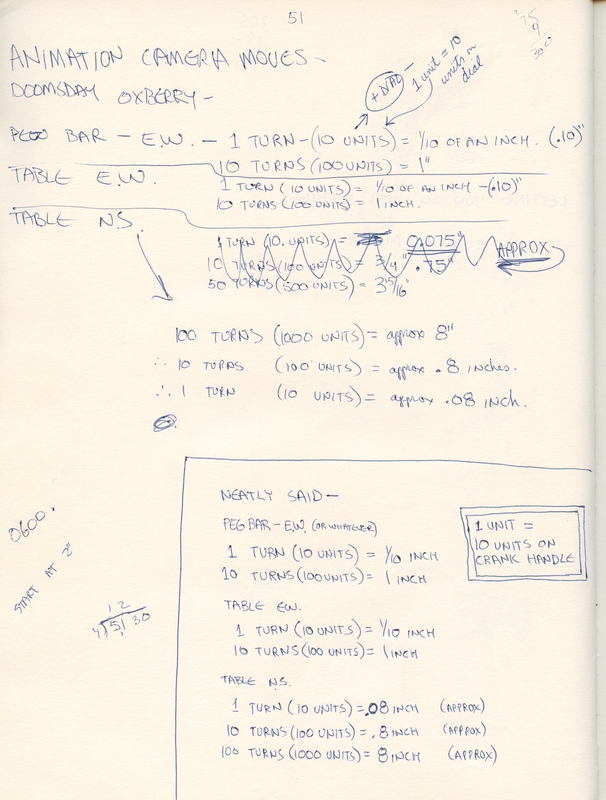 51
35
4
300
ANIMATION CAMERA MOVES -
DOOMSDAY OXBERRY -
+ DIAL -
1 unit = 10
units on
dial
PEG BAR - E.W. - 1 TURN - (10 UNITS) = 1/10 OF AN INCH. (.10)"
10 TURNS (100 UNITS) = 1"
TABLE E.W.
1 TURN (10 UNITS) = 1/10 OF AN INCH - (.10)"
10 TURNS (100 UNITS) = 1 INCH.
TABLE N.S.
1 TURN (10 UNITS) = 0.075"
10 TURNS (100 UNITS) = 3/4" .75"
APPROX
50 TURNS (500 UNITS) = 3 15/16"
100 TURNS (1000 UNITS) = approx 8"
∴ 10 TURNS (100 UNITS) = approx .8 inches.
∴ 1 TURN (10 UNITS) = approx .08 INCH.
0600.
START AT 2"
12
4 51 30
NEATLY SAID -
PEG BAR - E.W. (OR WHATEVER)
1 TURN (10 UNITS) = 1/10 INCH
10 TURNS (100 UNITS) = 1 INCH
1 UNIT =
10 UNITS ON
CRANK HANDLE
TABLE EW.
1 TURN (10 UNITS) = 1/10 INCH
10 TURNS (100 UNITS) = 1 INCH
TABLE N.S.
1 TURN (10 UNITS) = .08 INCH (APPROX)
10 TURNS (100 UNITS) = .8 INCH (APPROX)
100 TURNS (1000 UNITS) = 8 INCH (APPROX)